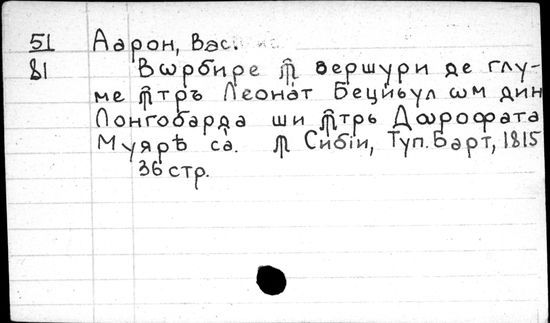 51 Аарон, Вас.
81 Вѡрбире ꙟ вершури де глу-
ме ꙟтръ Леонат Бецивул ѡм дин
Лонгобарда ши ꙟтрь Дѡрофата
Муярѣ са. ꙟ Сибіи, Туп. Барт, 1815
36 стр.